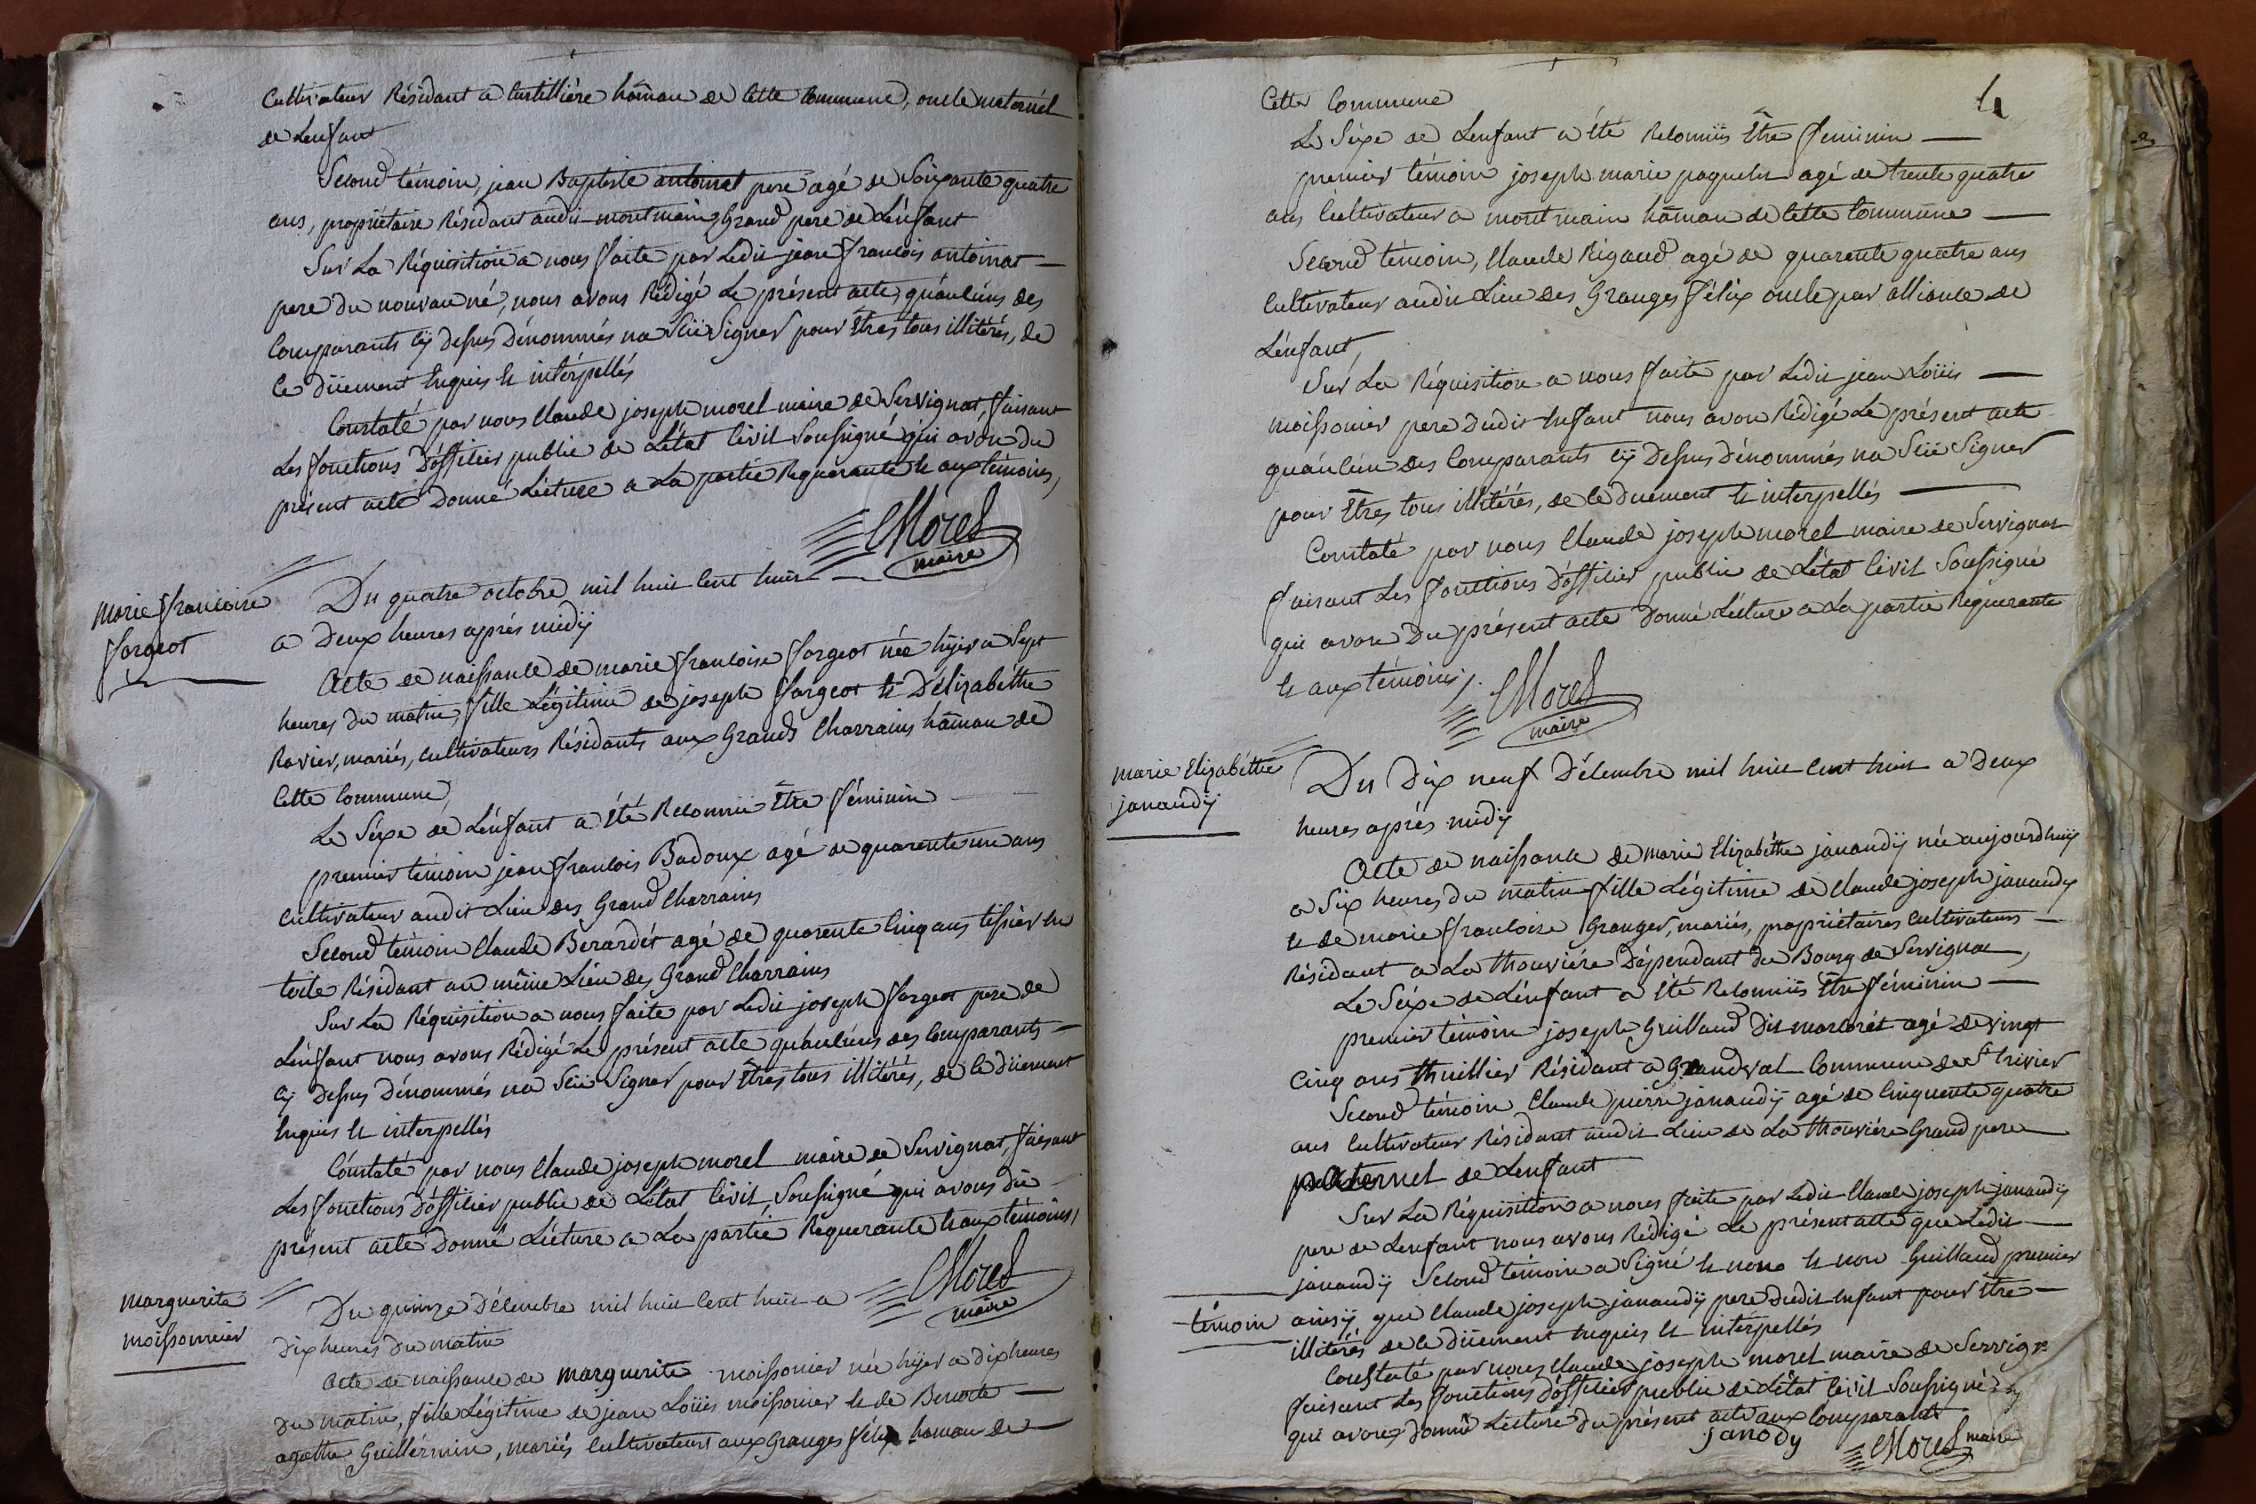 Cultivateur Résidant a Curtillière hâmau de Cette Commune, oncle maternél
de Lenfant
Second témoin, jean Baptiste antoinat pere agé de Soixante quatre
ans, propriétaire Résidant audit montmain, Grand pere de L'énfant
Sur La Réquisition a nous faite par Ledit jean francois antoinat —
pere du nouvau né, nous avons Rédigé Le présent acte, quáuĉuns des
Comparants cÿ Dessus Dénommés na Sçû Signer pour Etres tous illitérés, de
Ce Düement Enquis Et intérpellés
Constaté par nous Claude joseph morel maire de Servignat, faisant
Les fonctions D'officier public de L'état Civil Soussigné qui avon du
présent acte Donné Lécture a La partie Requerante Et aux témoins,
CMorel
maire
marie francoise
forgeot
Du quatre octobre mil huit Cent huit —
a Deux heures aprés midÿ
Acte de naissance de marie francoise forgeot née hÿer a Sept
heures du matin, fille Légitime de joseph forgeot Et D'élizabéthe
Ravier, mariés, cultivateurs Résidants aux Grands Charrains hâmau de
Cette Commune,
Le Séxe de L'énfant a Eté Reconnü Etre féminin
premier témoin jean francois Badoux agé de quarente un ans
Cultivateur audit Lieu des Grand Charrains
Second témoin Claude Bérardét agé de quarente Cinq ans tissier En
toile Résidant au même Lieu des Grand Charrains
Sur La Réquisition a nous faite par Ledit joseph forgeot pere de
L'énfant nous avons Rédigé Le présent acte quáuĉuns des Comparants —
Cÿ Dessus Dénommés na Sçû Signer pour Etres tous illitérés, de Ce düement
Enquis Et interpellés
Constaté par nous Claude joseph morel maire de Servignat, faisant
Les fonctions D'officier public de L'état Civil, Soussigné qui avons du
présent acte Donné Lécture a La partie Requerante Et aux témoins,
CMorel
maire
marguerite
moissonnier
Du quinze Décembre mil huit Cent huit a
Dix heures du matin
Acte de naissance de marguerite moissonier née hÿer a Dix heures
du matin, fille Légitime de jean Loüis moissonier Et de Benoite —
agathe Guillérmin, mariés Cultivateurs aux Granges félix hamau de
4
Cette Commune
Le Séxe de Lenfant a été Reconnüs Etre feminin —
premier témoin joseph marie paquelet agé de trente quatre
ans Cultivateur a montmain hâmau de Cette Commune —
Second témoin, Claude Rigaud agé de quarente quatre ans
Cultivateur audit Lieu des Granges félix oncle par alliance de
L'énfant,
Sur La Réquisition a nous faite par Ledit jean Loüis —
moissonier pere Dudit Enfant nous avon Rédigé Le présent acte
quáuĉun des Comparants Cÿ Dessus Dénommés na Sçû Signer
pour Etres tous illitérés, de Ce Duement Et interpellés —
Constaté par nous Claude joseph morel maire de Servignat
faisant Les fonctions D'officier public de L'état Civil Soussigné
qui avon Du présent acte Donné Lécture a La partie Requerante
Et aux témoins /.
CMorel
maire
marie Elizabéthe
janaudÿ
Du Dix neuf Décembre mil huit Cent huit a Deux
heures aprés midÿ
Acte de naissance de marie Elizabéthe janaudÿ née aujourdhuÿ
a Six heures du matin fille Légitime de Claude joseph janaudÿ
Et de marie francoise Granger, mariés, propriétaires Cultivateurs —
Résidant a La thouviére Dépendant du Bourg de Servignat,
Le Séxe de L'énfant a Eté Reconnüs Etre féminin —
premier témoin joseph Guillaud Dit marorét agé de vingt
Cinq ans thuillier Résidant a Grandval Commune de St trivier
Second témoin Claude pierre janaudÿ agé de Cinquente quatre
ans Cultivateur Résidant audit Lieu de La thouviére Grand pere
paternel de Lenfant
Sur La Réquisition a nous faite par Ledit Claude joseph janaudÿ
pere de Lenfant nous avons Rédigé Le présent acte que Ledit —
janaudÿ Second témoin a Signé Et nous Et non Guillaud premier
témoin ainsÿ que Claude joseph janaudÿ pere dudit Enfant pour Etre —
illitérés de Ce düement Enquis Et intérpellés
Constaté par nous Claude joseph morel maire de Servig
faisant Les fonctions D'officier public de L'état Civil Soussigné
qui avons donné Lecture du présent acte aux Comparants
janody
CMorel maire